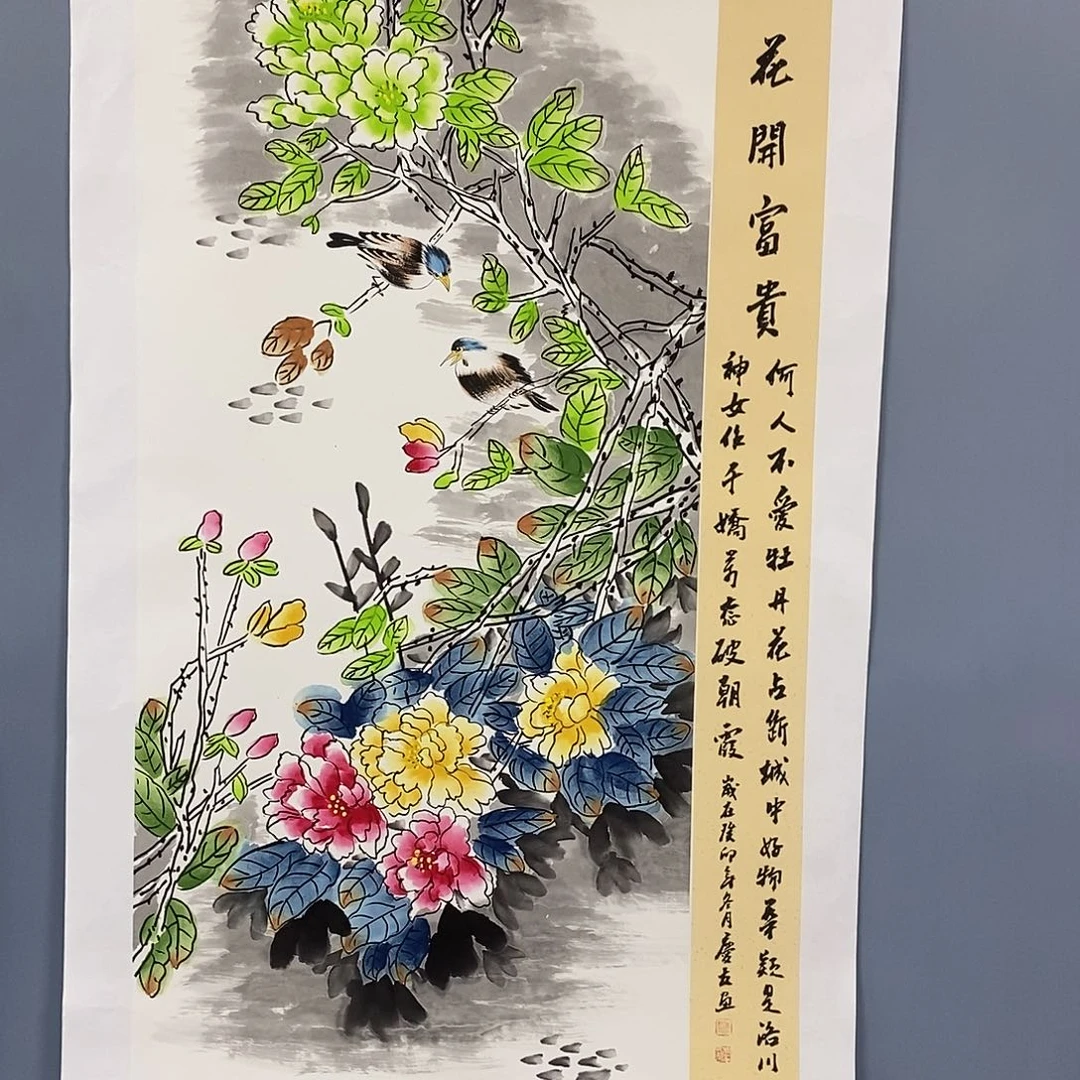 花開富貴
何人不愛牡丹花占斷城中好物華疑是洛川
神女作千嬌萬态破朝霞
歲在癸卯年冬月慶云画